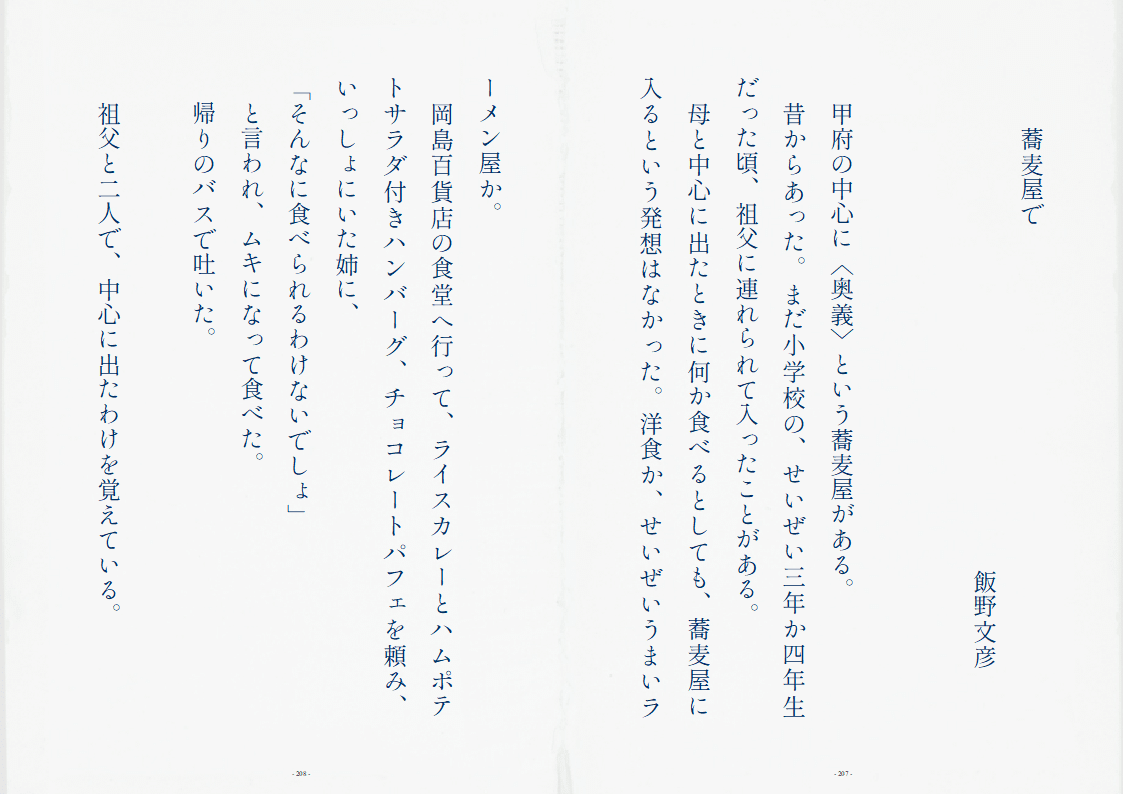 蕎麦屋で
飯野文彦
甲府の中心に〈奥義〉という蕎麦屋がある。
昔からあった。まだ小学校の、せいぜい三年か四年生
だった頃、祖父に連れられて入ったことがある。
母と中心に出たときに何か食べるとしても、蕎麦屋に
入るという発想はなかった。洋食か、せいぜいうまいラ
- 207 -
ーメン屋か。
岡島百貨店の食堂へ行って、ライスカレーとハムポテ
トサラダ付きハンバーグ、チョコレートパフェを頼み、
いっしょにいた姉に、
「そんなに食べられるわけないでしょ」
と言われ、ムキになって食べた。
帰りのバスで吐いた。
祖父と二人で、中心に出たわけを覚えている。
- 208 -